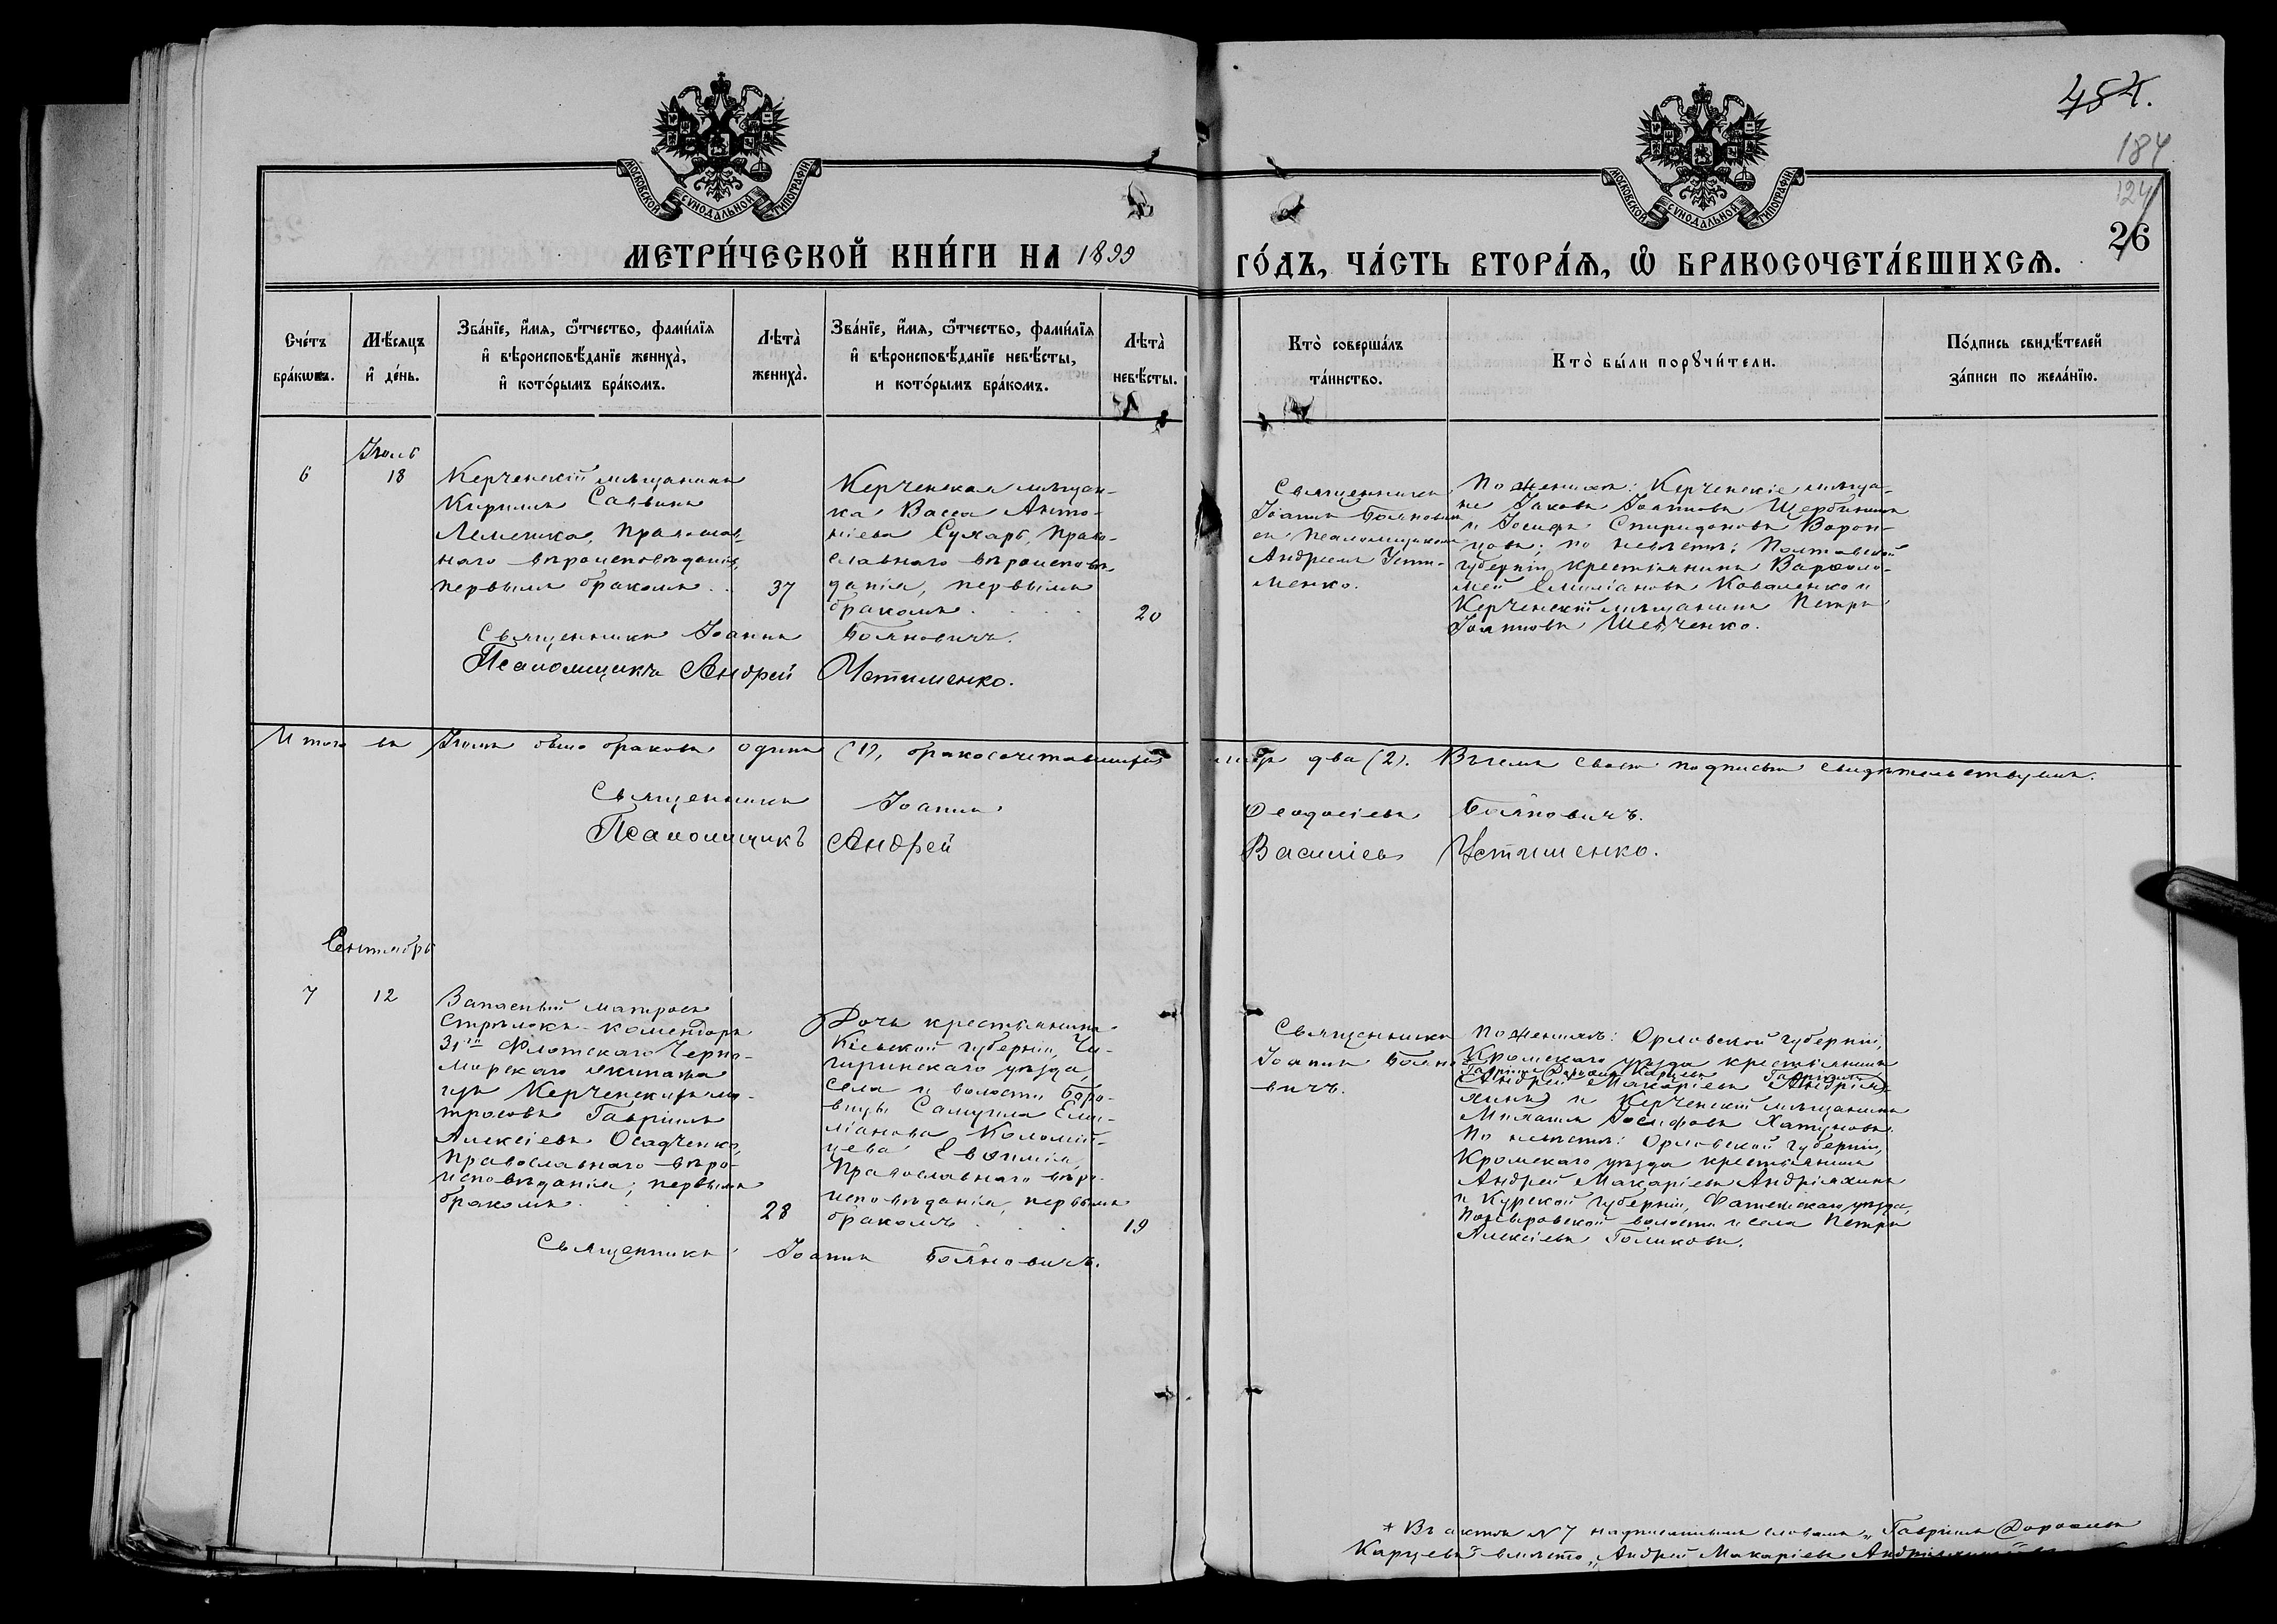 454.
184
124
26
МОСКОВСКОЙ СѴНОДАЛЬНОЙ ТИПОГРАФІИ
МОСКОВСКОЙ СѴНОДАЛЬНОЙ ТИПОГРАФІИ
МЕТРИ́ЧЕСКОЙ КНИ́ГИ НА 1899
ГО́ДЪ, ЧА́СТЬ ВТОРА́Ѧ, Ѡ҆ БРАКОСОЧЕТА́ВШИХСѦ.
Сче́тъ
бра́кѡвъ.
Мѣ́сяцъ
и҆ де́нь.
Зва́нїе, и҆́мѧ, ѻ҆́тчество, фами́лїѧ
и҆ вѣроисповѣ́данїе жениха̀,
и҆ кото́рымъ бра́комъ.
Лѣта̀
жениха̀.
Зва́нїе, и҆́мѧ, ѻ҆́тчество, фами́лїѧ
и҆ вѣроисповѣ́данїе невѣ́сты,
и кото́рымъ бра́комъ.
Лѣта̀
невѣ́сты.
Кто̀ соверша́лъ
та́инство.
Кто̀ бы́ли порꙋчи́тели.
По́дпись свидѣ́телей
за́писи по жела́нїю.
Іюль
6
18
Керченскій мѣщанинъ
Кириллъ Саввинъ
Лемешко, православ-
наго вѣроисповѣданія,
первымъ бракомъ . .
37
Керченская мѣщан-
ка Васса Анто-
ніева Сухарь, право-
славнаго вѣроисповѣ-
данія, первымъ
бракомъ . . . .
20
Священникъ
Іоаннъ Бояновичъ
съ псаломщикомъ
Андреемъ Усти-
менко.
По женихѣ: Керченскіе мѣща-
не Іаковъ Іоанновъ Щербининъ
и Іосифъ Спиридоновъ Ворон-
цовъ; по невѣстѣ: Полтавской
губерніи крестьянинъ Варѳоло-
мей Емиліановъ Коваленко и
Керченскій мѣщанинъ Петръ
Іоанновъ Шевченко.
Священникъ Іоаннъ Бояновичъ.
Псаломщикъ Андрей Устименко.
Итого въ Іюлѣ было браковъ одинъ (1), бракосочетавшихся лицъ два (2). Въ чемъ своею подписью свидѣтельствуемъ.
Священникъ Іоаннъ Ѳеодосіевъ Бояновичъ.
Псаломщикъ Андрей Василіевъ Устименко.
Сентябрь
7
12
Запасный матросъ
стрѣлокъ-комендоръ
31го Флотскаго Черно-
морскаго экипажа
изъ Керченскихъ ма-
тросовъ Гавріилъ
Алексіевъ Осадченко,
православнаго вѣро-
исповѣданія, первымъ
бракомъ . . . .
28
Дочь крестьянина
Кіевской губерніи, Чи-
гиринскаго уѣзда,
села и волости Боро-
вицы Самуила Еми-
ліанова Коломій-
цева Евѳимія,
православнаго вѣро-
исповѣданія, первымъ
бракомъ . . .
19
Священникъ
Іоаннъ Бояно-
вичъ.
По женихѣ: Орловской губерніи,
Кромскаго уѣзда крестьянинъ
Гавріилъ Дороѳеевъ Карцевъ
(Андрей Макаріевъ Андрія-
хинъ) и Керченскій мѣщанинъ
Михаилъ Іосифовъ Хатуновъ.
По невѣстѣ: Орловской губерніи,
Кромскаго уѣзда крестьянинъ
Андрей Макаріевъ Андріяхинъ
и Курской губерніи, Фатежскаго уѣзда,
Поныровской волости и села Петръ
Алексіевъ Голиковъ.
Священникъ Іоаннъ Бояновичъ.
* Въ актѣ №7 надписаннымъ словамъ „Гавріилъ Дороѳеевъ
Карцевъ" вмѣсто „Андрей Макаріевъ Андріяхинъ"